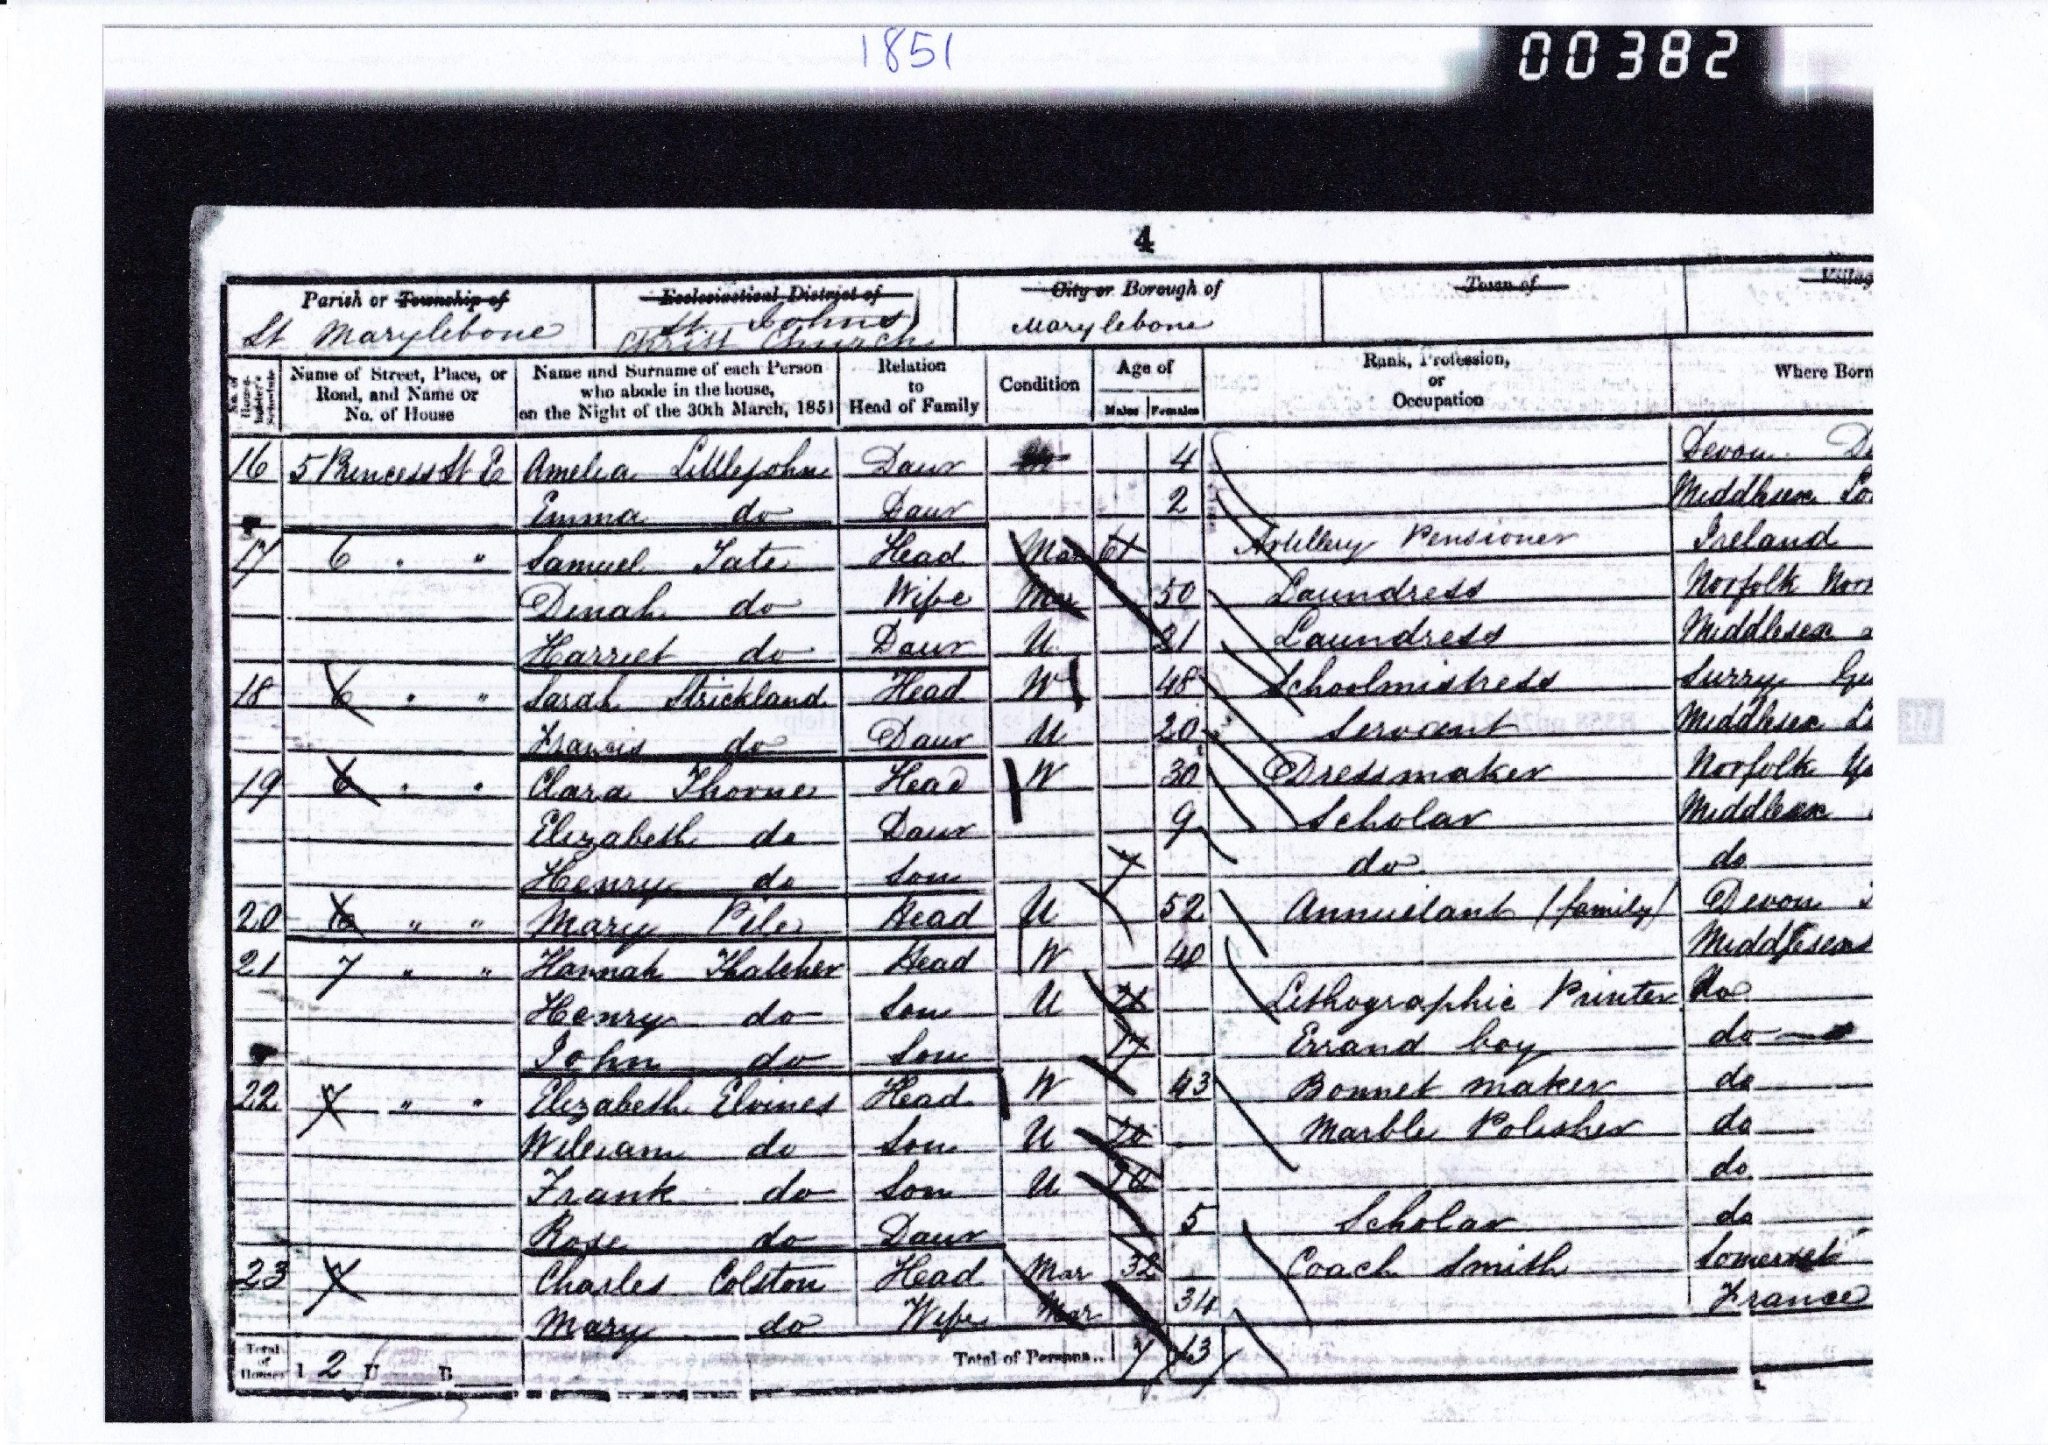 1851
00382
4
Parish or Township of
Ecclesiastical District of
City or Borough of
Town of
Villag
St Marylebone
St Johns
Christ Church
Marylebone
No. of House-holder's Schedule
Name of Street, Place, or Road, and Name or No. of House
Name and Surname of each Person who abode in the house, on the Night of the 30th March, 1851
Relation to Head of Family
Condition
Age of
Males Females
Rank, Profession, or Occupation
Where Born
16 5 Princess St E Amelia Littlejohn Daur 4 Devon D
Emma do Daur 2 Middlesex Lo
17 6 " " Samuel Tate Head Mar 61 Artillery Pensioner Ireland
Dinah do Wife Mar 50 Laundress Norfolk Nor
Harriet do Daur U 21 Laundress Middlesex
18 6 " " Sarah Strickland Head W 48 Schoolmistress Surry Gu
Francis do Daur U 20 Servent Middlesex L
19 6 " " Clara Thorne Head W 30 Dressmaker Norfolk Y
Elizabeth do Daur 9 Scholar Middlesex
Henry do Son 7 do do
20 6 " " Mary Pile Head U 52 Annuitant (family) Devon
21 7 " " Hannah Thatcher Head W 40 Middlesex
Henry do Son U 21 Lithographic Printer do
John do Son 17 Errand boy do
22 7 " " Elizabeth Elvines Head W 43 Bonnet maker do
William do Son U 20 Marble Polisher do
Frank do Son U 10 do
Rose do Daur 5 Scholar do
23 7 Charles Colston Head Mar 32 Coach Smith Somerset
Mary do Wife Mar 34 France
Total of Houses I 2 U B Total of Persons.. 7 13